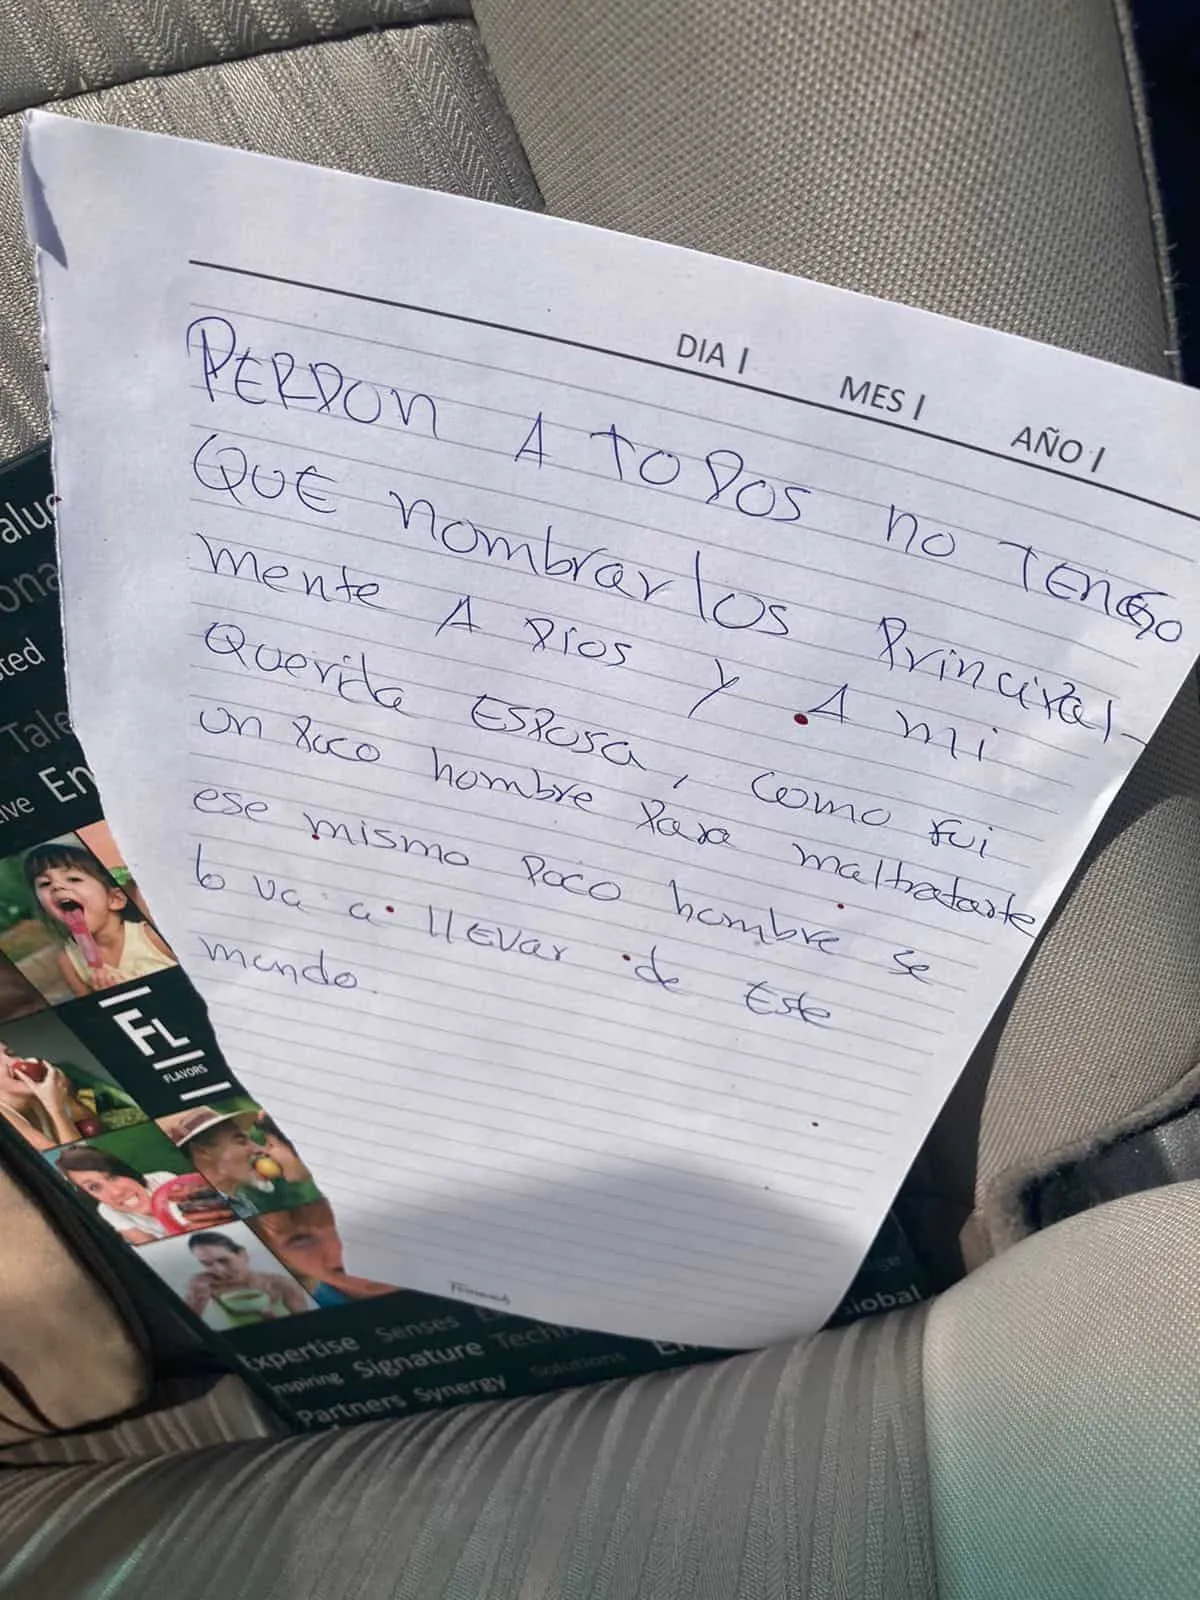 DIA | MES | AÑO |
PERDON A TODOS NO TENGO
QUE nombrarlos Principal-
mente A Dios Y A mi
Querida Esposa, como fui
un poco hombre para maltratarte
ese mismo poco hombre se
lo va a llevar de Este
mundo.
ted
Tale
ive En
FL
FLAVORS
Expertise Senses
nspiring Signature Techn
Partners Synergy Solutions
Global